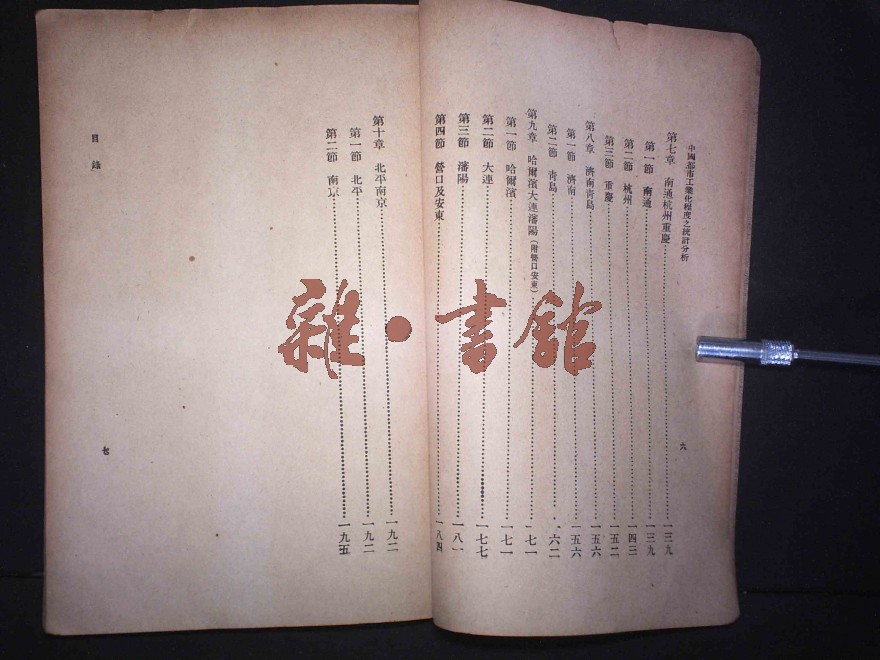 中國都市工業化程度之統計分析
第七章 南通杭州重慶……一三九
第一節 南通……一三九
第二節 杭州……一四三
第三節 重慶……一五二
第八章 濟南青島……一五六
第一節 濟南……一五六
第二節 靑島……一六二
第九章 哈爾濱大連瀋陽(附營口安東)……一七一
第一節 哈爾濱……一七一
第二節 大連……一七七
第三節 瀋陽……一八一
第四節 營口及安東……一八四
六
第十章 北平南京……一九二
第一節 北平……一九二
第二節 南京……一九五
目錄
七
雜·書館